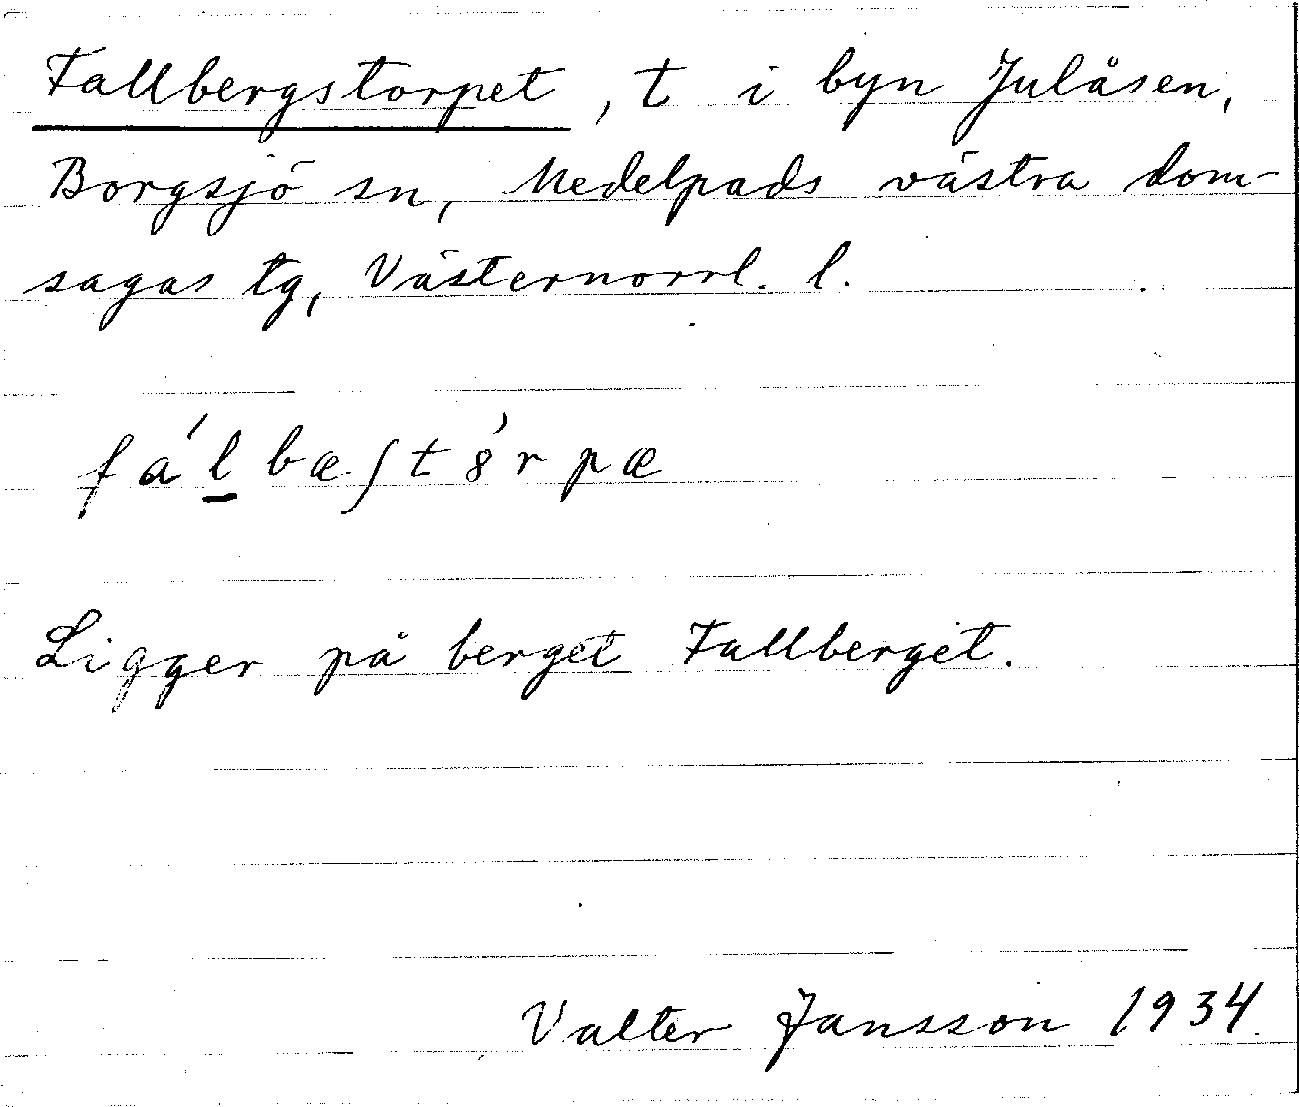 Fallbergstorpet, t i byn Julåsen,
Borgsjö sn, Medelpads västra dom-
sagas tg, Västernorrl. l.
fa´l̲bæʃt8̀rpæ
Ligger på berget Fallberget.
Valter Jansson 1934.